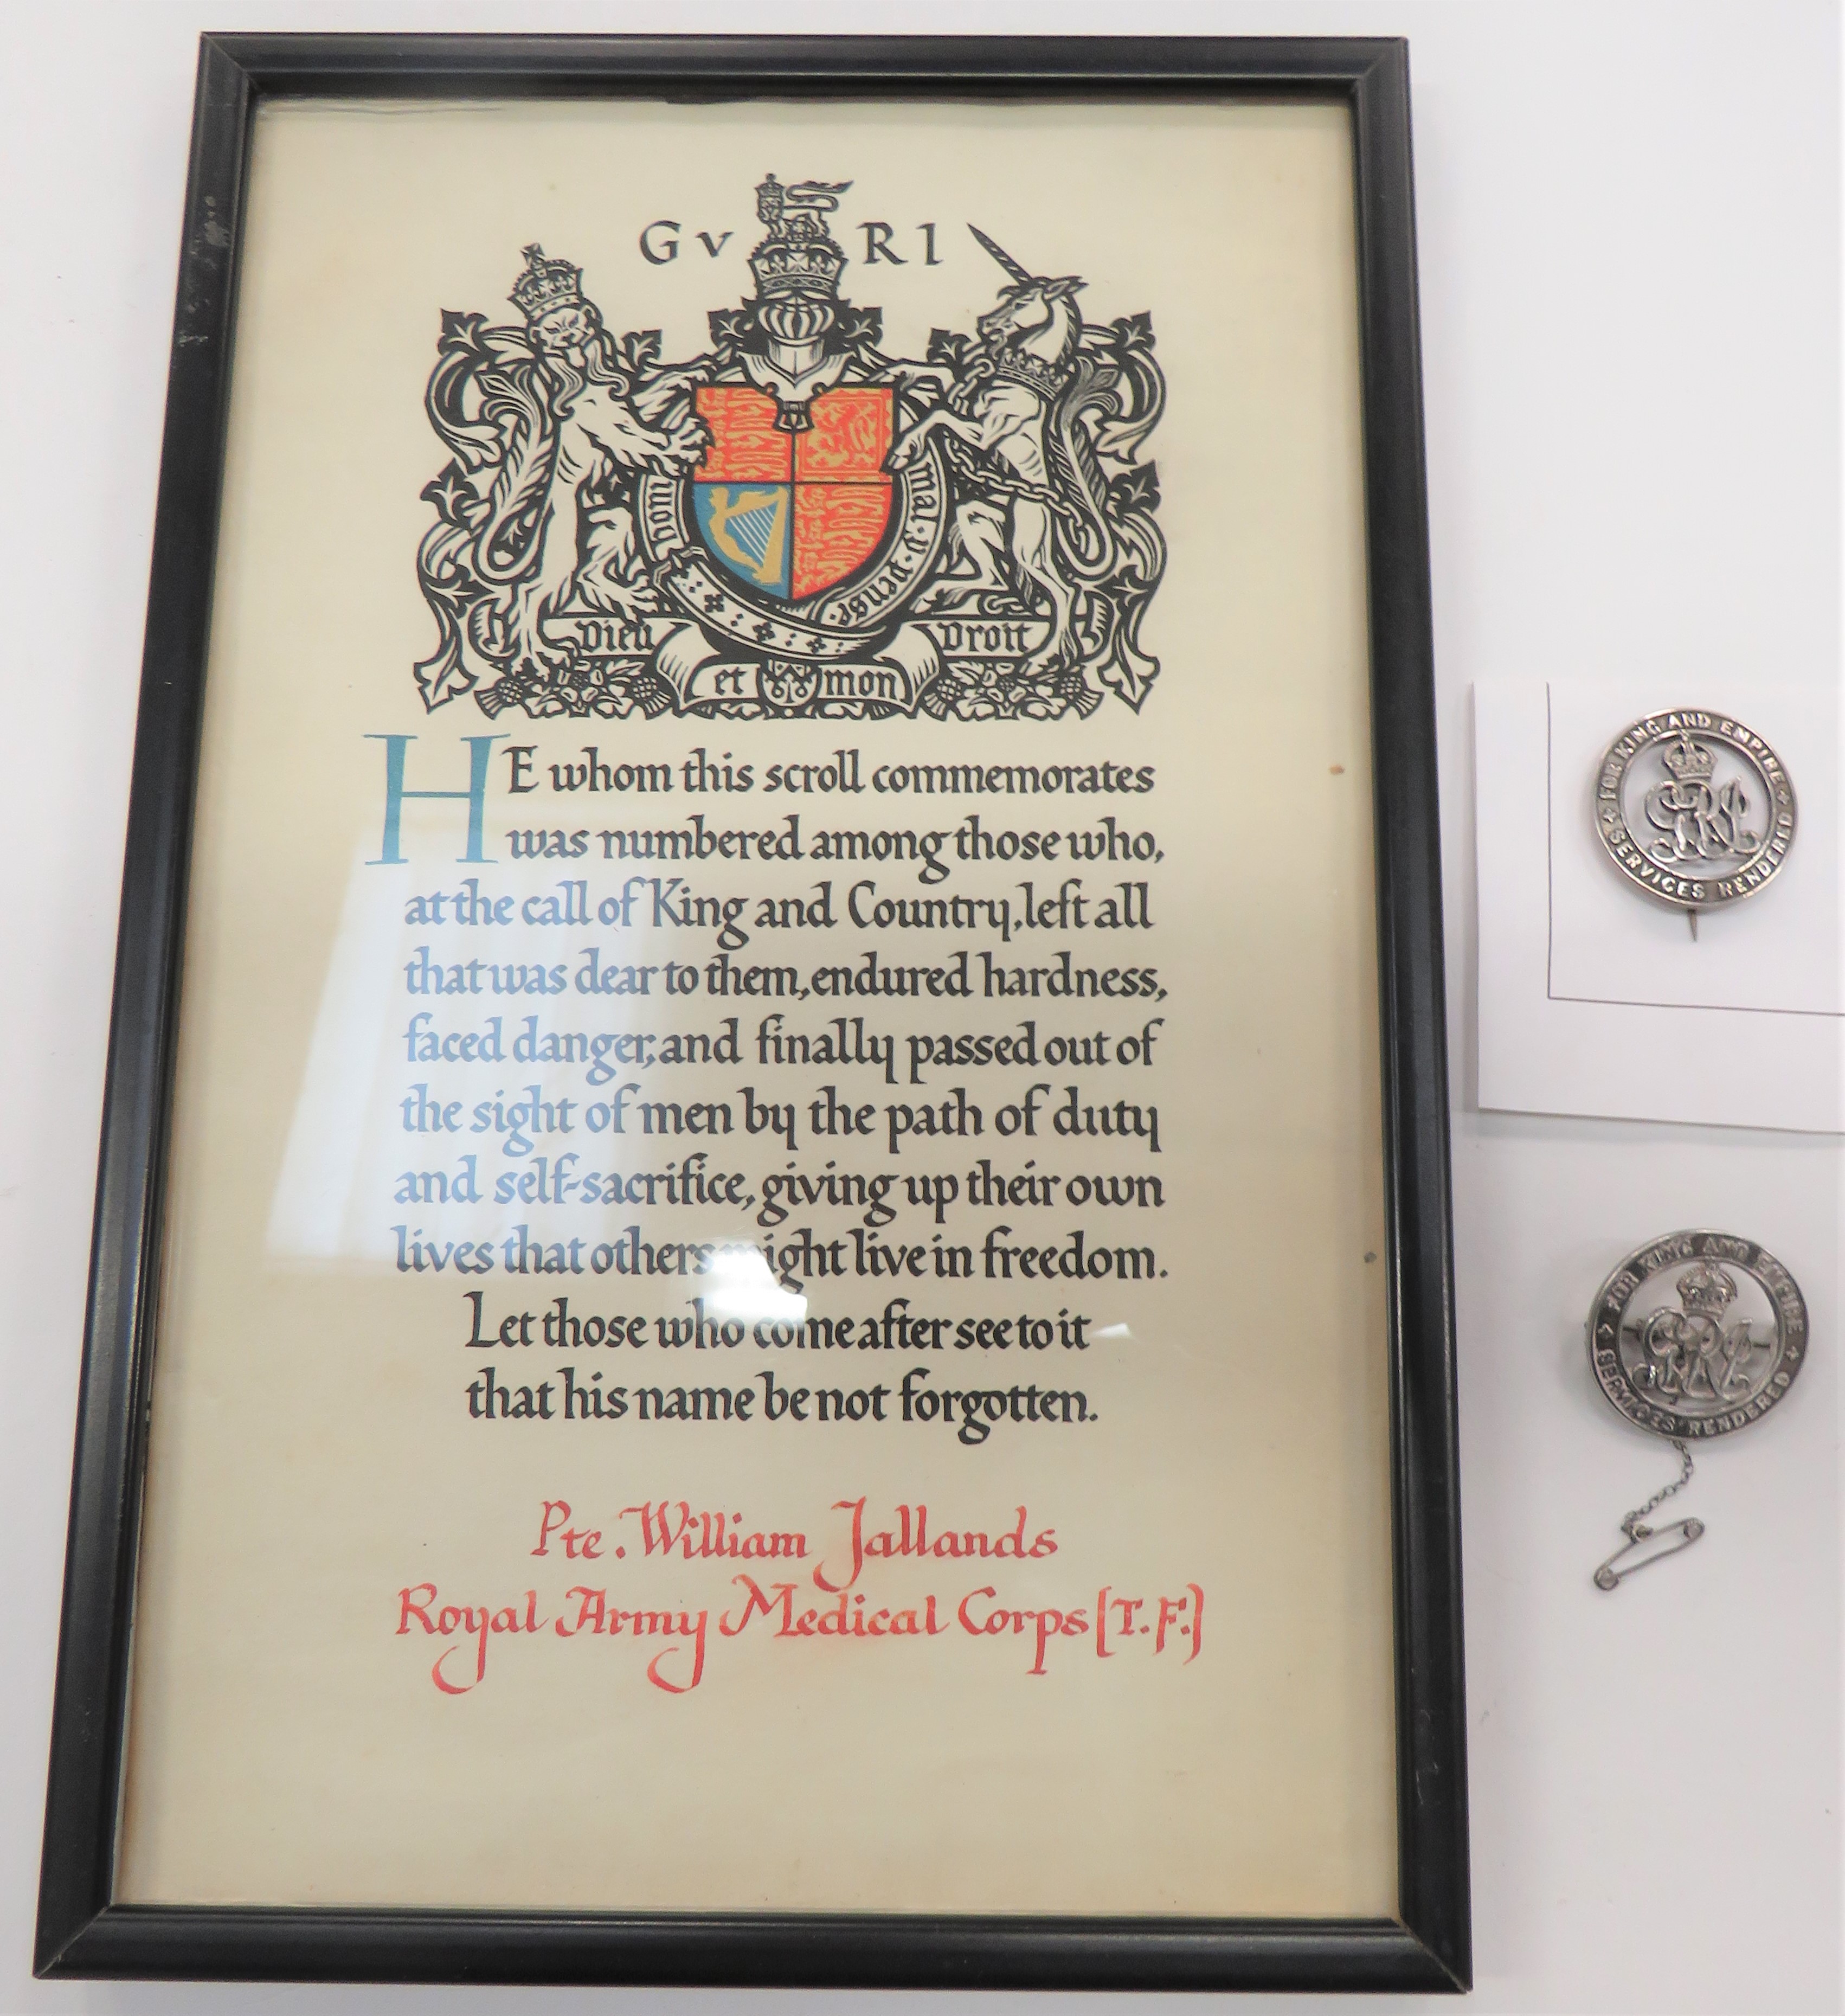 G V R I
honi mal · y · pense ·
Dieu Droit
et mon
HE whom this scroll commemorates
was numbered among those who,
at the call of King and Country, left all
that was dear to them, endured hardness,
faced danger, and finally passed out of
the sight of men by the path of duty
and self-sacrifice, giving up their own
lives that others might live in freedom.
Let those who come after see to it
that his name be not forgotten.
Pte. William Jallands
Royal Army Medical Corps (T.F.)
FOR KING AND EMPIRE
SERVICES RENDERED
FOR KING AND EMPIRE
SERVICES RENDERED